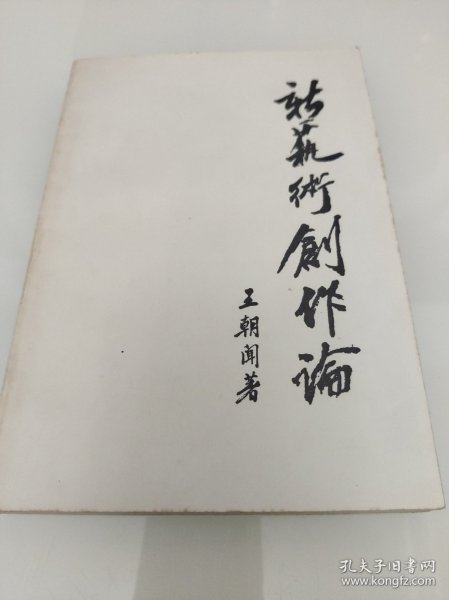 新藝術創作論
王朝聞著
孔夫子旧书网
www.kongfz.com